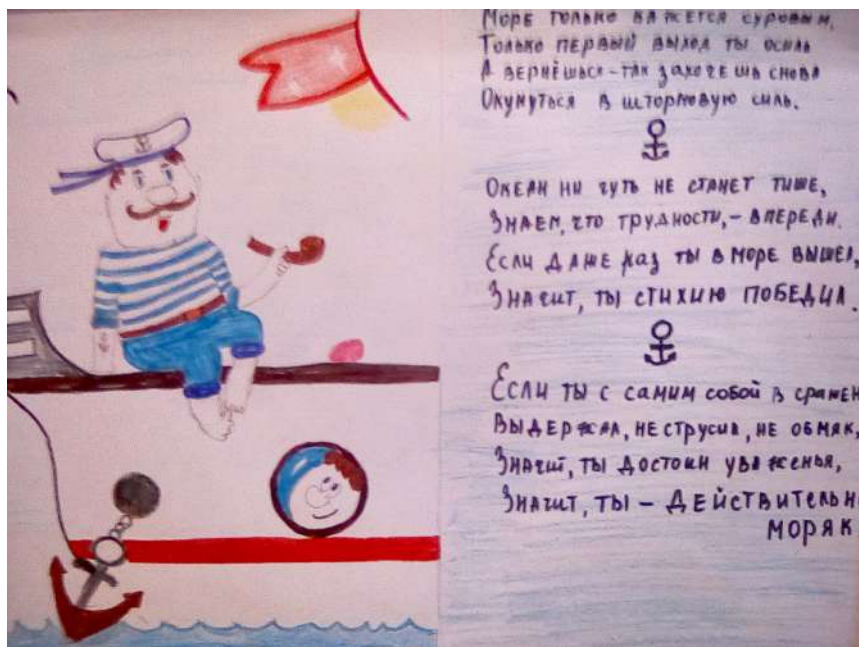 Море только кажется суровым,
Только первый выход ты осиль
А вернёшься-так захочешь снова
Окунуться в штормовую силь.
Океан ни чуть не станет тише,
Знаем, что трудности,- впереди.
Если даже раз ты в море вышел,
Значит, ты стихию победил.
Если ты с самим собой в сражен
Выдержал, не струсил, не обмяк,
Значит, ты достоин уваженья,
Значит, ты - Действительн
моряк